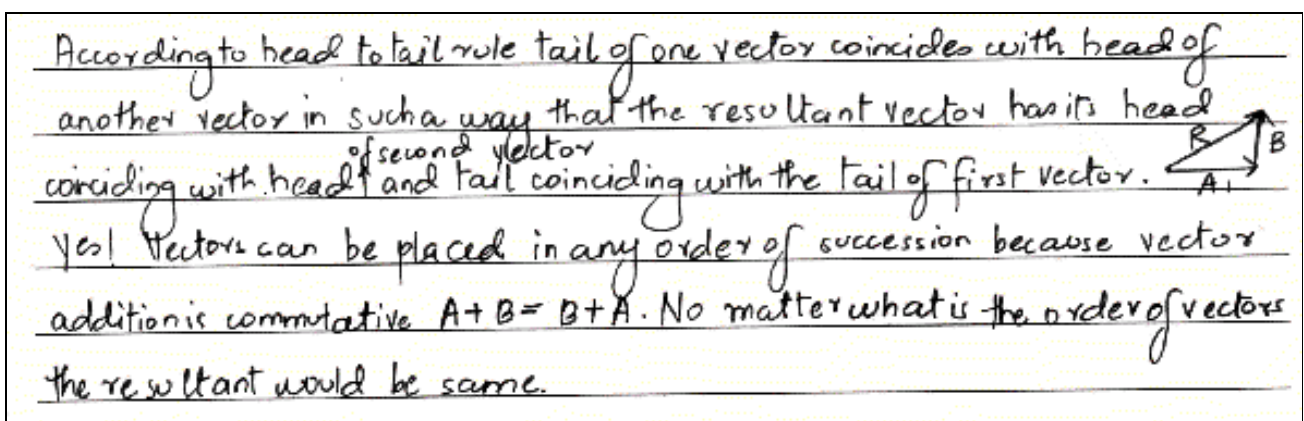 According to head to tail rule tail of one vector coincides with head of
another vector in such a way that the resultant vector has its head
of second vector
coinciding with head and tail coinciding with the tail of first vector.
R
B
A
Yes! Vectors can be placed in any order of succession because vector
addition is commutative A+B=B+A. No matter what is the order of vectors
the resultant would be same.